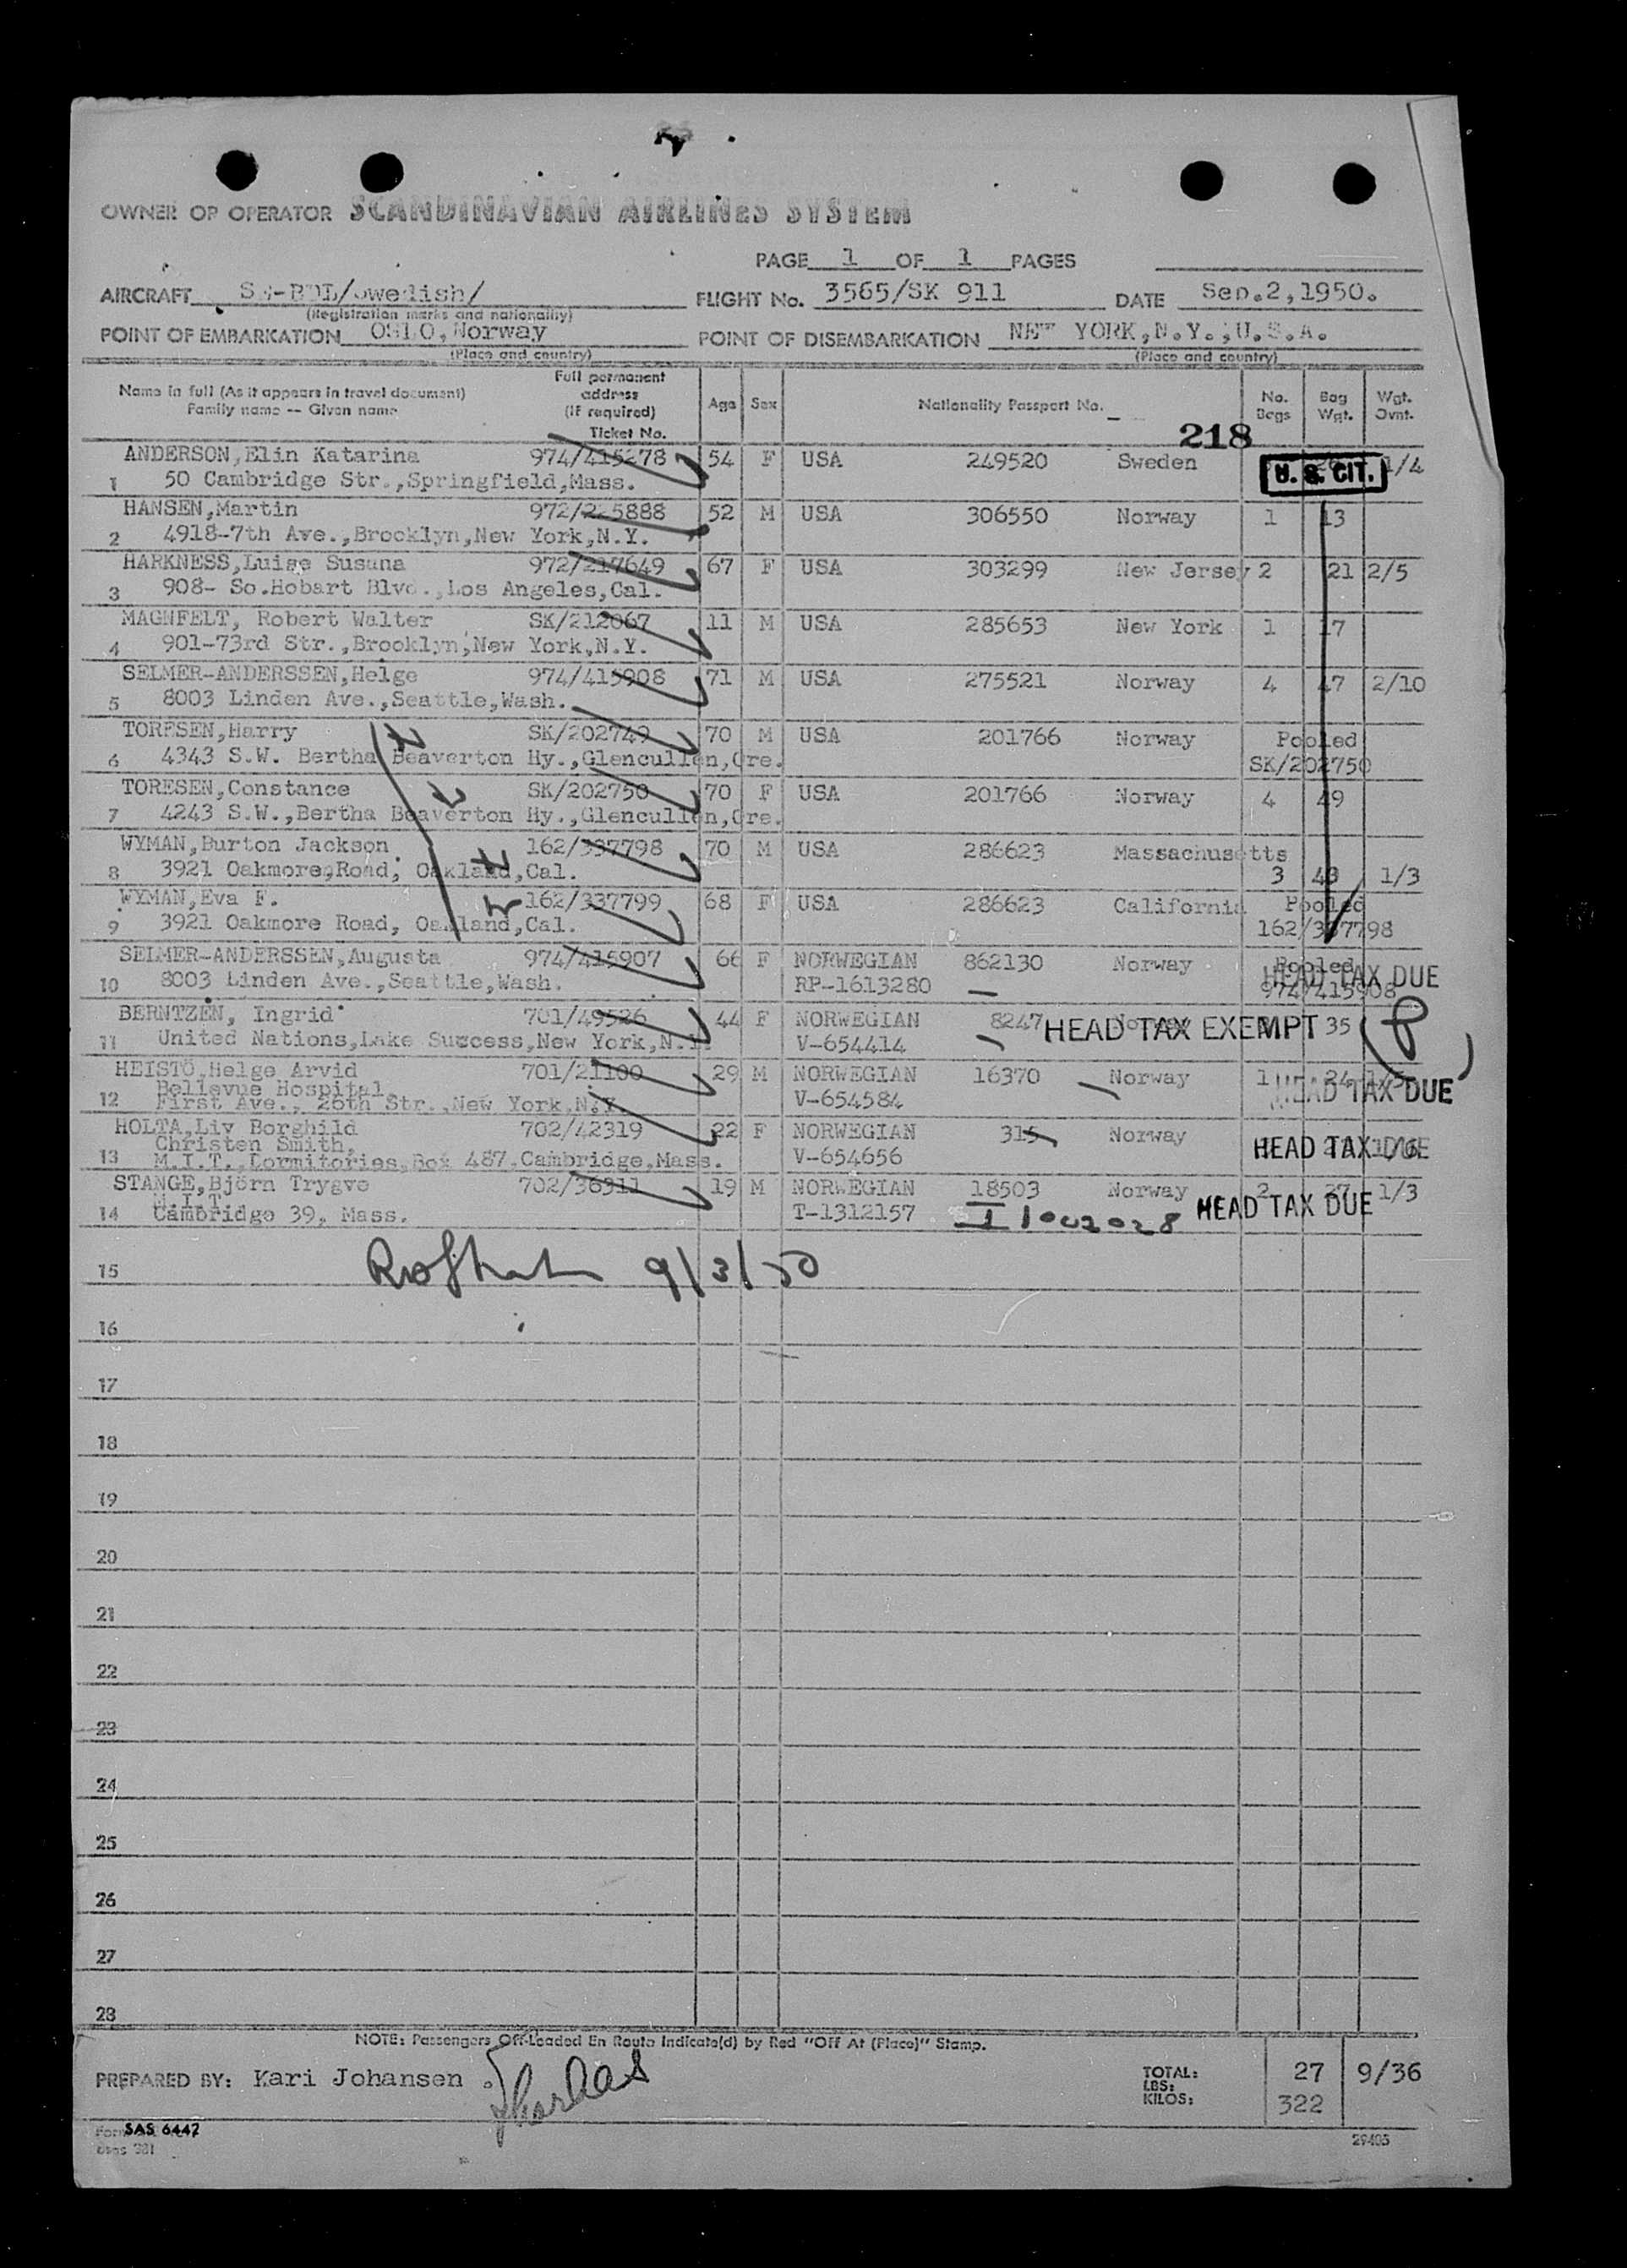 218
OWNER OR OPERATOR SCANDINAVIAN AIRLINES SYSTEM
PAGE 1 OF 1 PAGES
AIRCRAFT /Swedish/ FLIGHT No. 3565/SK 911 DATE Sep.2,1950.
(Registration marks and nationality)
POINT OF EMBARKATION OSLO,Norway POINT OF DISEMBARKATION NEW YORK,N.Y.,U.S.A.
(Place and country) (Place and country)
Name in full (As it appears in travel document) Family name -- Given name Full permanent address (if required) Ticket No. Age Sex Nationality Passport No. No. Bags Bag Wgt. Wgt. Ovnt.
ANDERSON,Elin Katarina 974/415278 54 F USA 249520 Sweden U. S. CIT. 1/4
1 50 Cambridge Str.,Springfield,Mass.
HANSEN,Martin 972/225888 52 M USA 306550 Norway 1 13
2 4918-7th Ave.,Brooklyn,New York,N.Y.
HARKNESS,Luise Susana 972/217649 67 F USA 303299 New Jersey 2 21 2/5
3 908- So.Hobart Blvd.,Los Angeles,Cal.
MAGNFELT, Robert Walter SK/212067 11 M USA 285653 New York 1 17
4 901-73rd Str.,Brooklyn,New York,N.Y.
SELMER-ANDERSSEN,Helge 974/415908 71 M USA 275521 Norway 4 47 2/10
5 8003 Linden Ave.,Seattle,Wash.
TORESEN,Harry SK/202749 70 M USA 201766 Norway Pooled
6 4343 S.W. Bertha Beaverton Hy.,Glencullen,Ore. SK/202750
TORESEN,Constance SK/202750 70 F USA 201766 Norway 4 49
7 4243 S.W.,Bertha Beaverton Hy.,Glencullen,Ore.
WYMAN,Burton Jackson 162/337798 70 M USA 286623 Massachusetts
8 3921 Oakmore,Road, Oakland,Cal. 3 43 1/3
WYMAN,Eva F. 162/337799 68 F USA 286623 California Pooled
9 3921 Oakmore Road, Oakland,Cal. 162/337798
SELMER-ANDERSSEN,Augusta 974/415907 66 F NORWEGIAN 862130 Norway Pooled HEAD TAX DUE
10 8003 Linden Ave.,Seattle,Wash. RP-1613280 974/415908
BERNTZEN, Ingrid 701/49526 44 F NORWEGIAN 8247 Norway HEAD TAX EXEMPT 35
11 United Nations,Lake Success,New York,N.Y. V-654414
HEISTÖ,Helge Arvid 701/21100 29 M NORWEGIAN 16370 Norway 1 24
Bellevue Hospital, HEAD TAX DUE
12 First Ave., 26th Str.,New York,N.Y. V-654584
HOLTA,Liv Borghild 702/42319 22 F NORWEGIAN 315 Norway
Christen Smith, HEAD TAX DUE
13 M.I.T.,Dormitories,Box 487,Cambridge,Mass. V-654656
STANGE,Björn Trygve 702/36311 19 M NORWEGIAN 18503 Norway 2 27 1/3
M.I.T. HEAD TAX DUE
14 Cambridge 39, Mass. T-1312157
15 9/3/50
16
17
18
19
20
21
22
23
24
25
26
27
28
NOTE: Passengers Off-Loaded En Route Indicate(d) by Red "Off At (Place)" Stamp.
PREPARED BY: Kari Johansen TOTAL: 27 9/36
LBS:
KILOS: 322
Form SAS 6442
29405